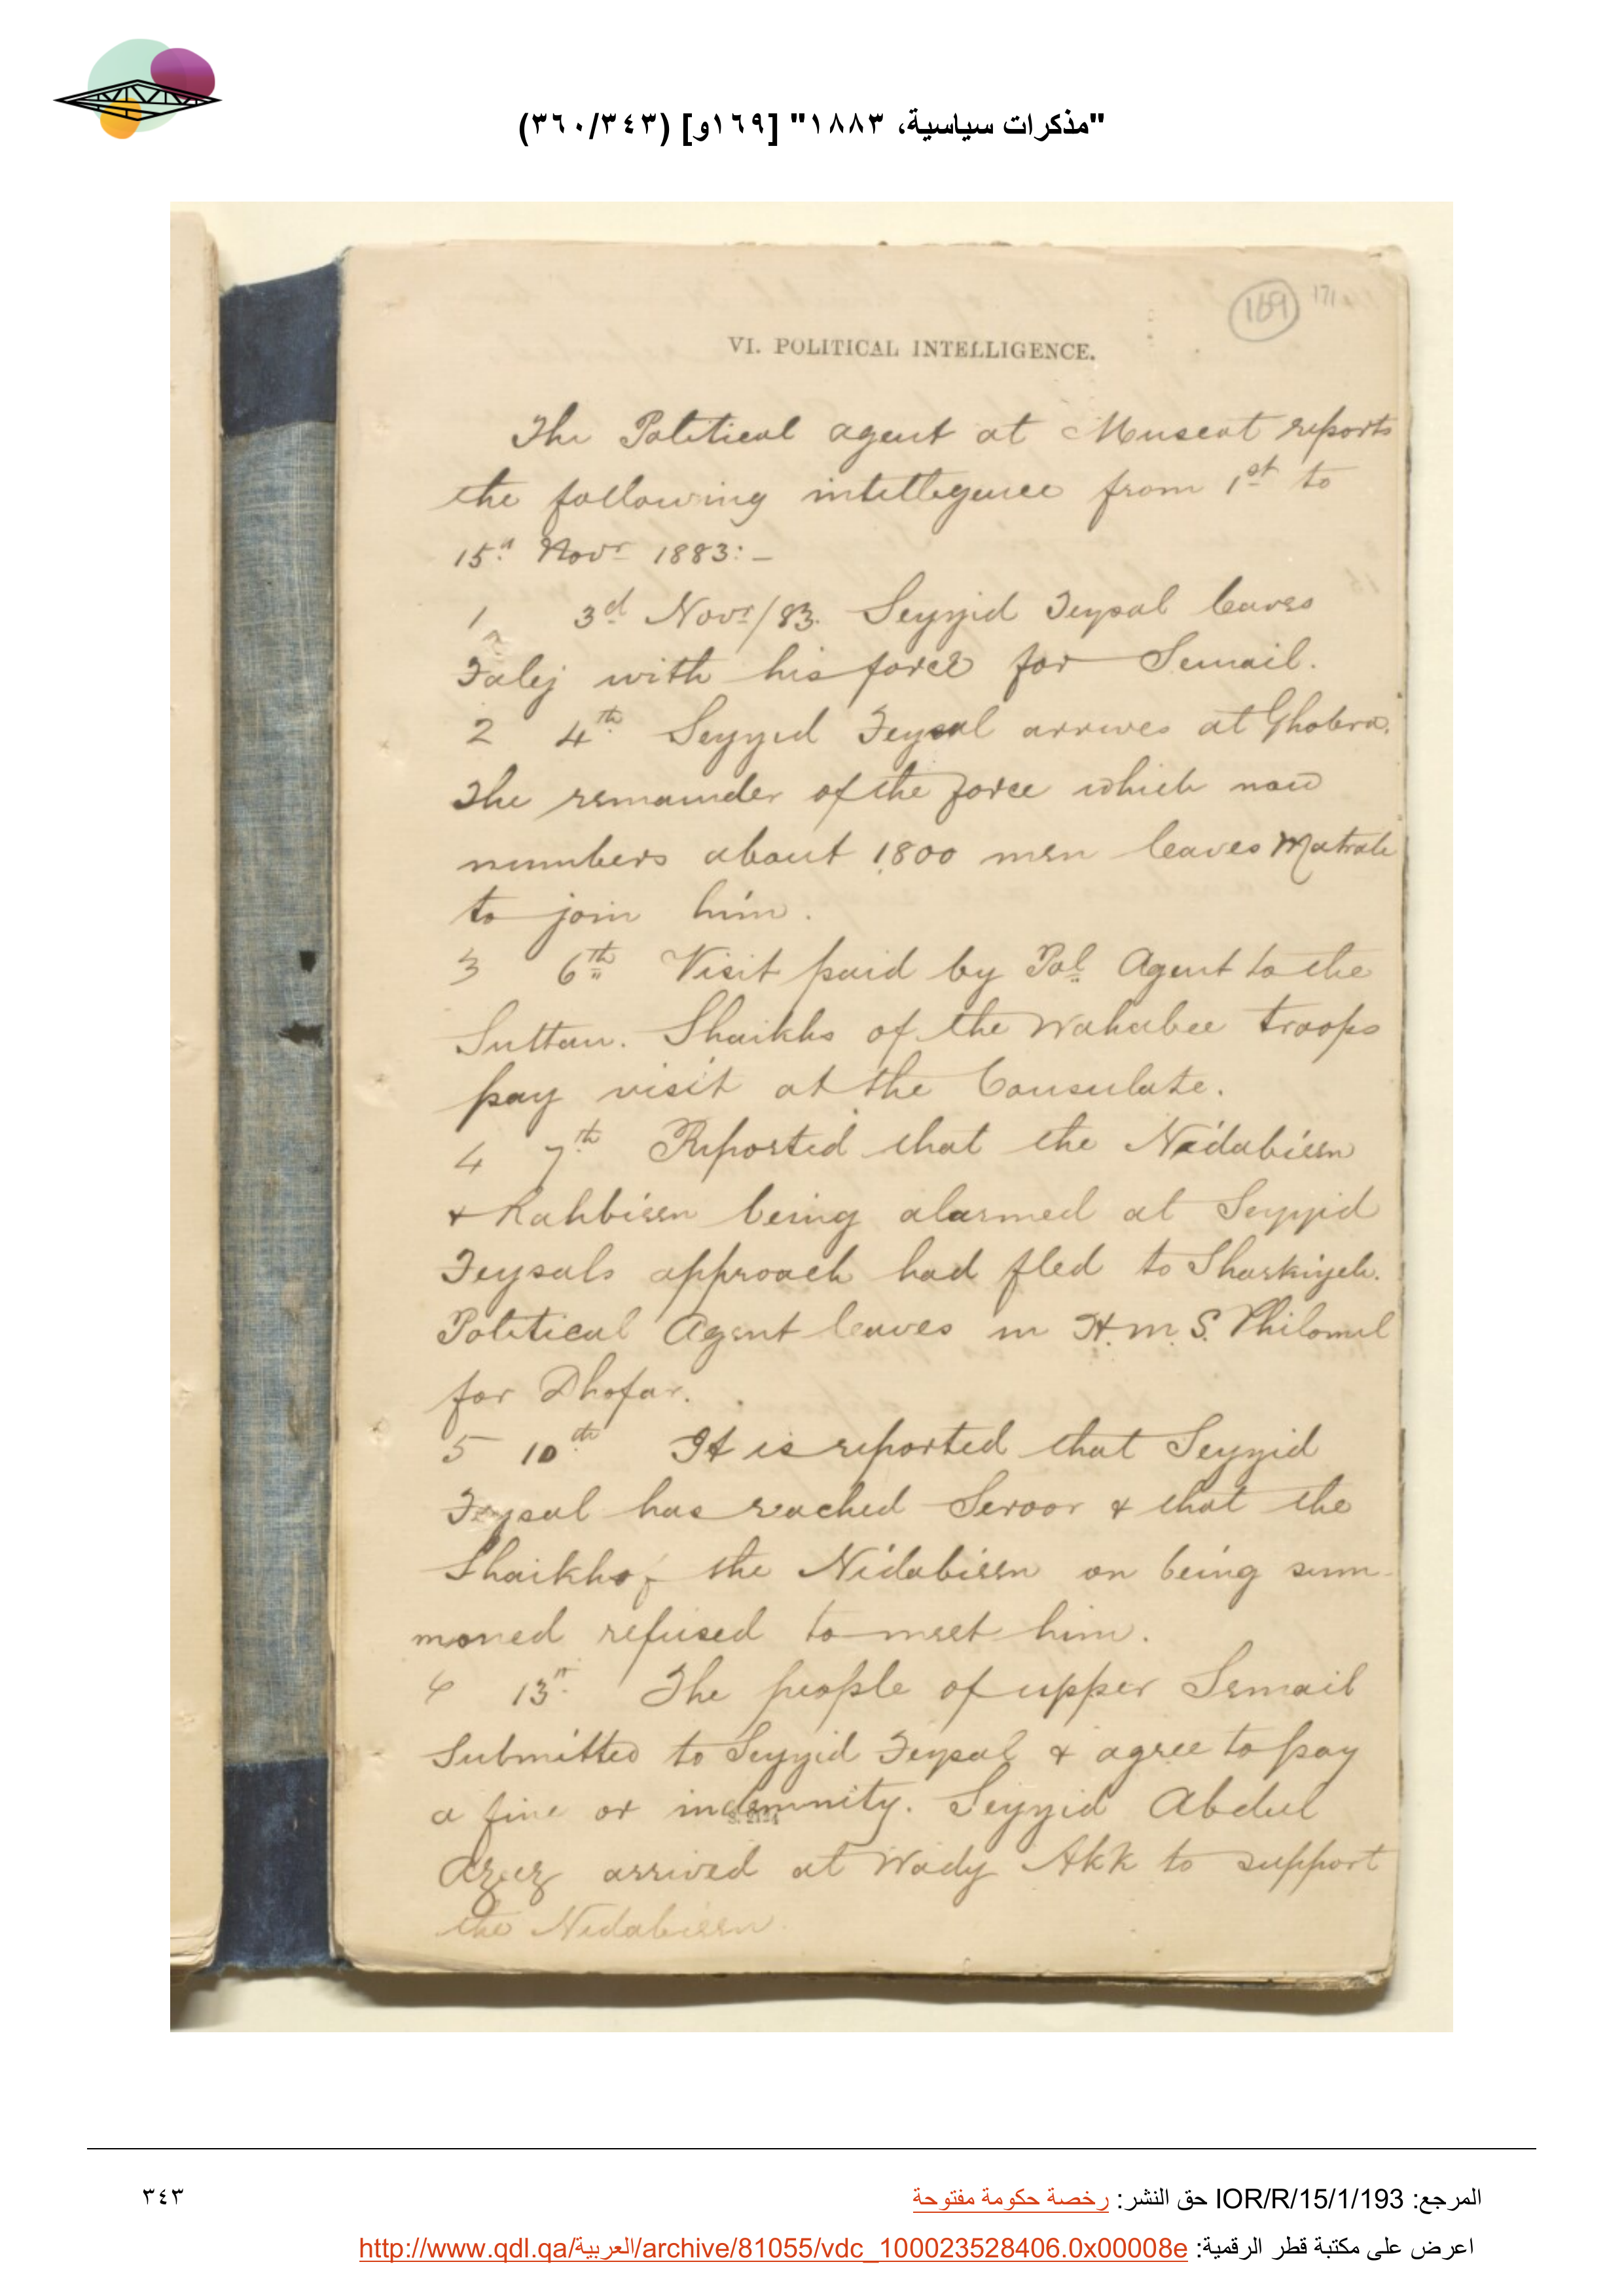 "مذكرات سياسية، ١٨٨٣" [١٦٩و] (٣٤٣/٣٦٠)
169 171
VI. POLITICAL INTELLIGENCE.
The Political agent at Muscat reports
the following intelligence from 1st to
15th Novr 1883:-
1 3d Novr/83. Seyyid Feysal leaves
Falej with his force for Semail.
2 4th Seyyid Feysal arrives at Ghobra.
The remainder of the force which now
numbers about 1800 men leaves Matrah
to join him.
3 6th Visit paid by Pol. Agent to the
Sultan. Shaikhs of the Wahabee troops
pay visit at the Consulate.
4 7th Reported that the Nidabieen
& Rahbieen being alarmed at Seyyid
Feysals approach had fled to Sharkiyeh.
Political Agent leaves in H.M.S. Philomel
for Dhofar.
5 10th It is reported that Seyyid
Feysal has reached Seroor & that the
Shaikh of the Nidabieen on being sum-
moned refused to meet him.
6 13th The people of upper Semail
Submitted to Seyyid Feysal & agree to pay
a fine or indemnity. Seyyid Abdul
Azeez arrived at Wady Akk to support
the Nidabieen.
المرجع: IOR/R/15/1/193 حق النشر: رخصة حكومة مفتوحة
٣٤٣
اعرض على مكتبة قطر الرقمية: http://www.qdl.qa/العربية/archive/81055/vdc_100023528406.0x00008e